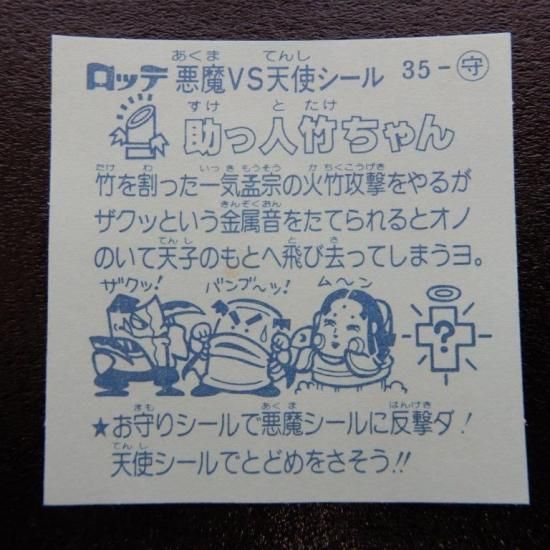 ロッテ 悪魔VS天使シール 35-守
助っ人竹ちゃん
竹を割った一気孟宗の火竹攻撃をやるが
ザクッという金属音をたてられるとオノ
のいて天子のもとへ飛び去ってしまうヨ。
ザクッ! バンブ〜ッ! ム〜ン
?
★お守りシールで悪魔シールに反撃ダ!
天使シールでとどめをさそう!!